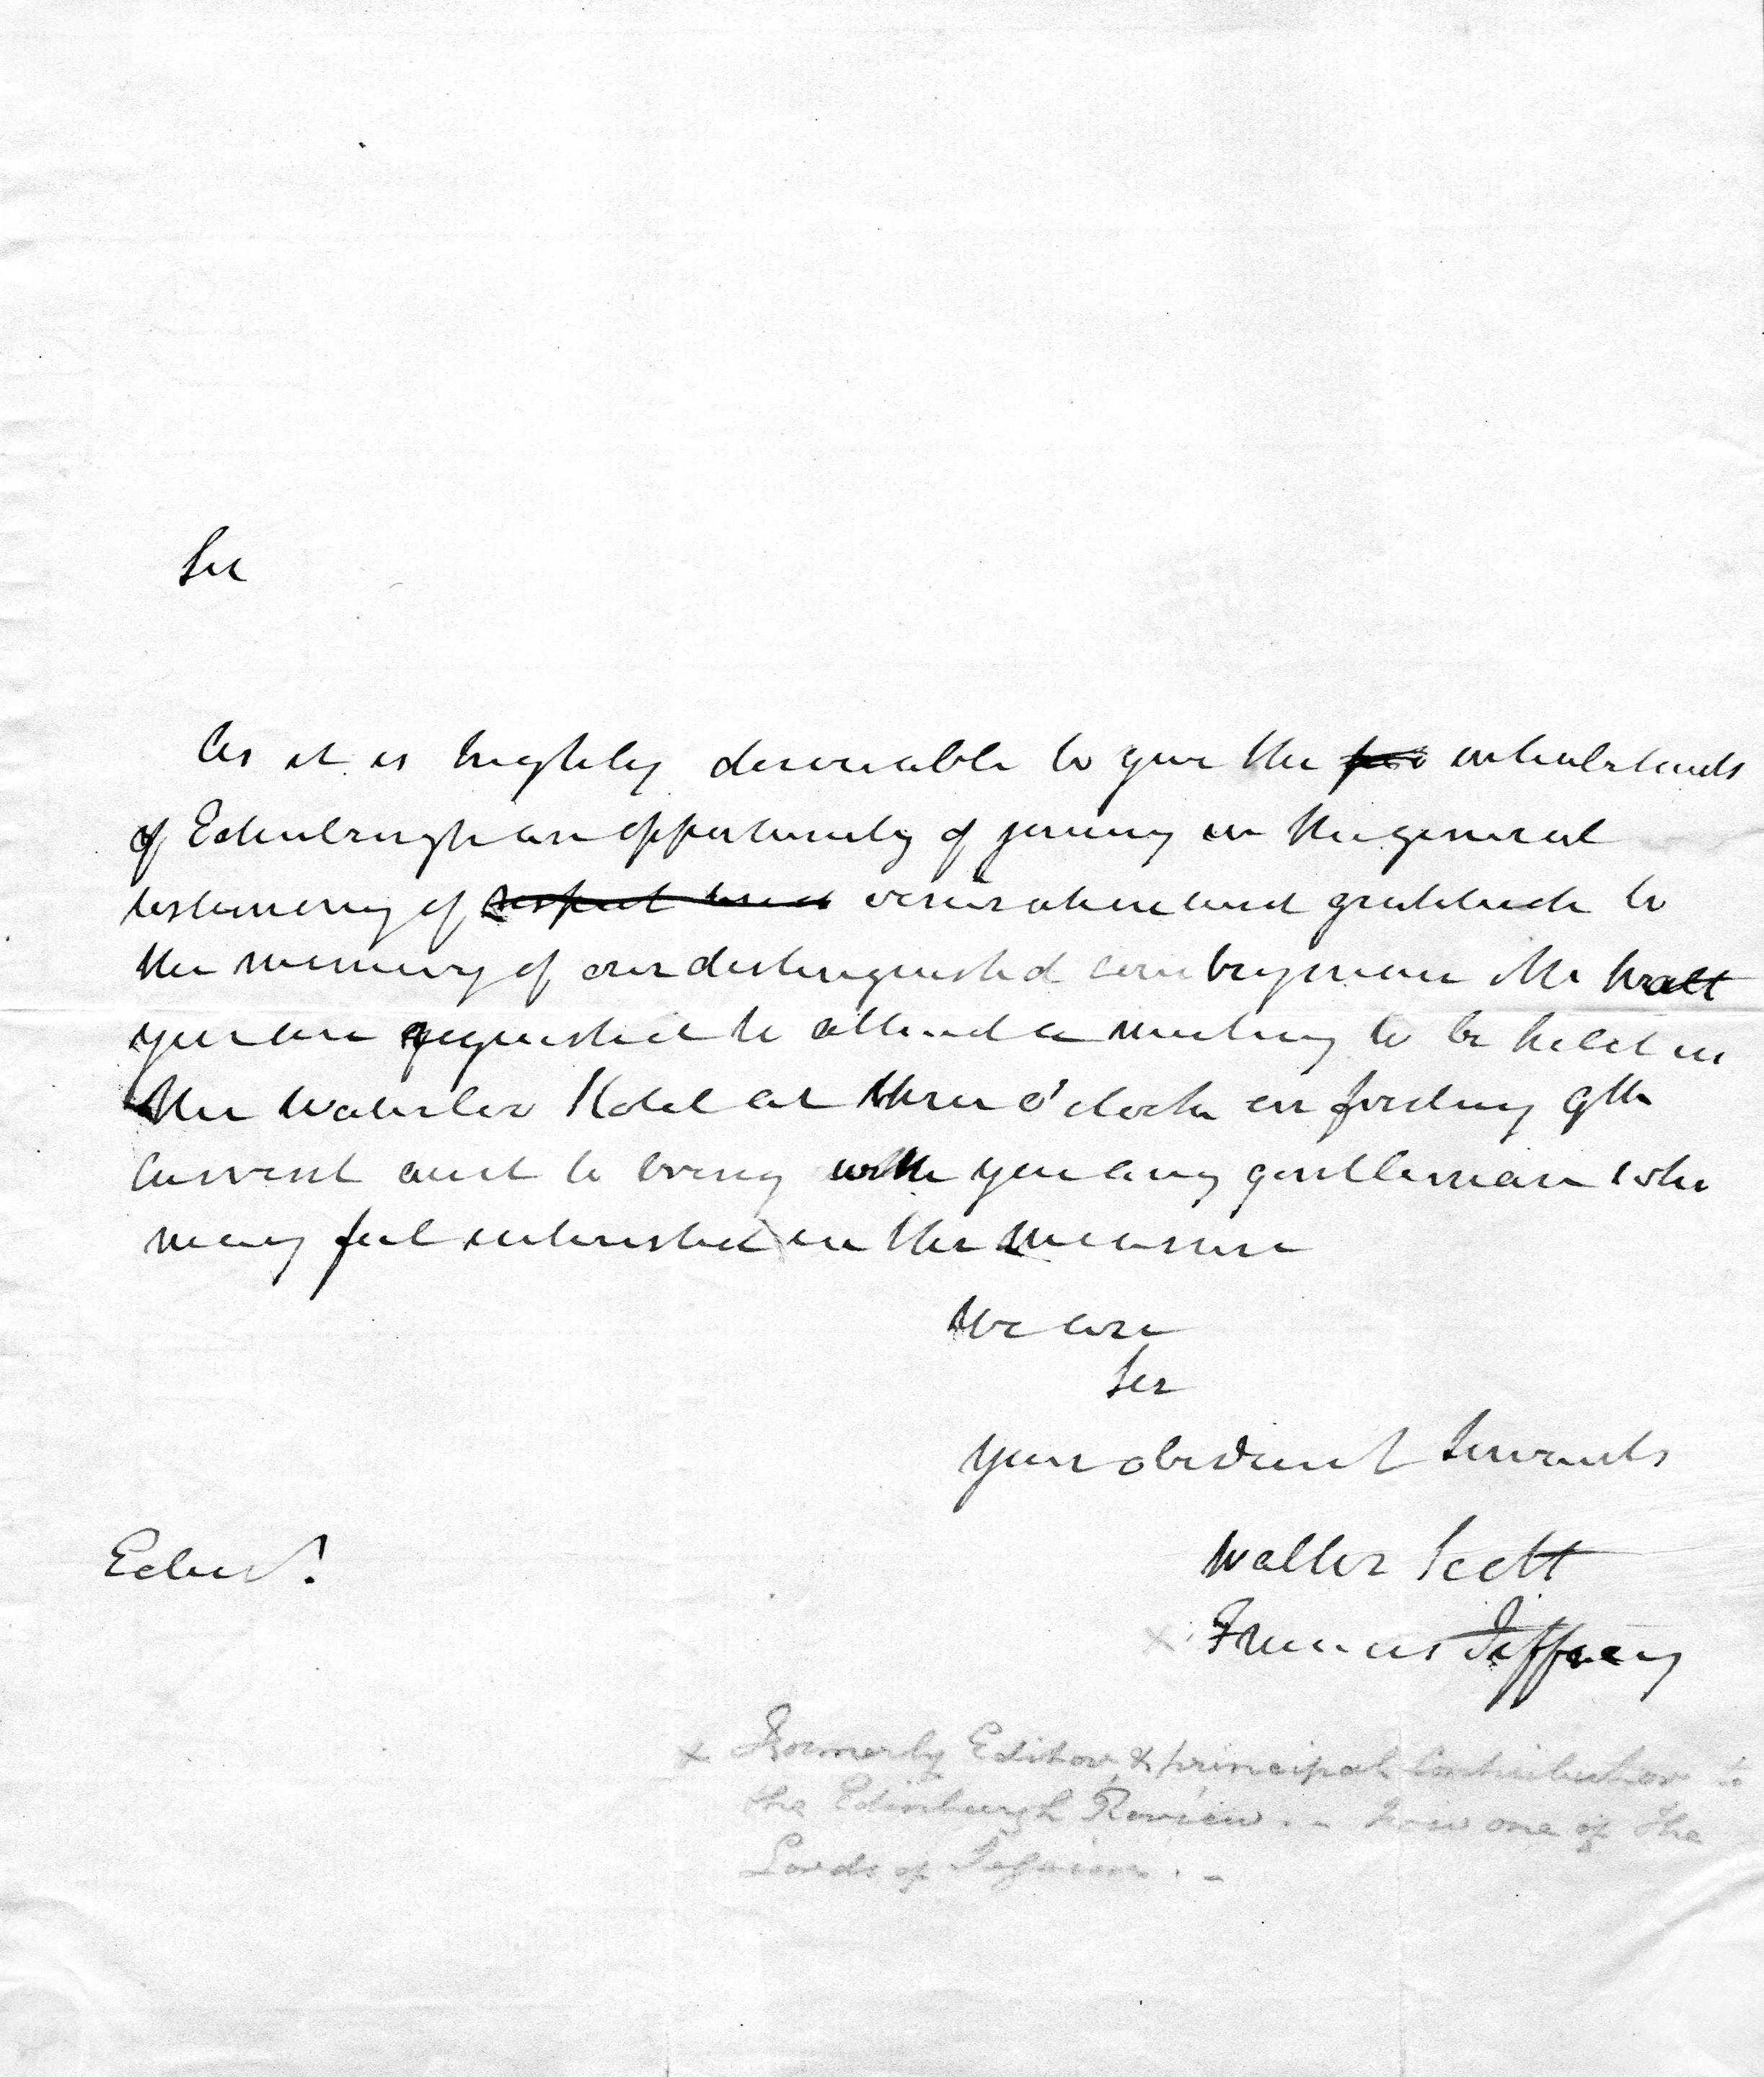 Sir
As it is highly desirable to give the inhabitants
of Edinburgh an opportunity of joining in the general
testimony of respect and veneration and gratitude to
the memory of our distinguished countryman Mr Watt
you are requested to attend a meeting to be held in
the Waterloo Hotel at three o'clock on friday 9th
current and to bring with you any gentleman who
may feel interested in the measure
We are
Sir
Your obedient Servants
Edinr.
Walter Scott
x Francis Jeffrey
x Formerly Editor & principal Contributor to
the Edinburgh Review. - Now one of the
Lords of Session. -